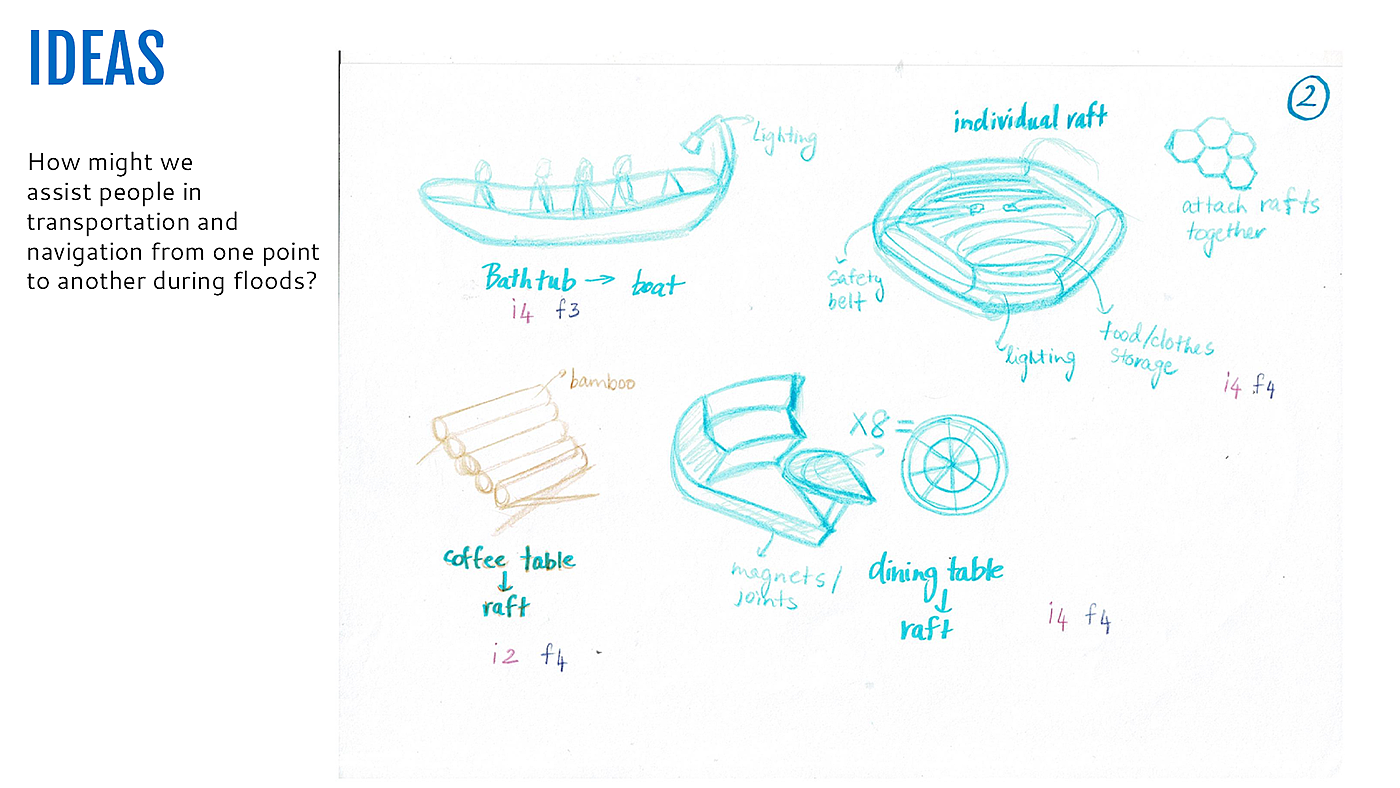 IDEAS
How might we
assist people in
transportation and
navigation from one point
to another during floods?
2
Lighting
Bathtub → boat
i4 f3
individual raft
attach rafts
together
safety
belt
lighting
food/clothes
storage
i4 f4
bamboo
coffee table
↓
raft
i2 f4
x8 =
magnets/
joints
dining table
↓
raft
i4 f4